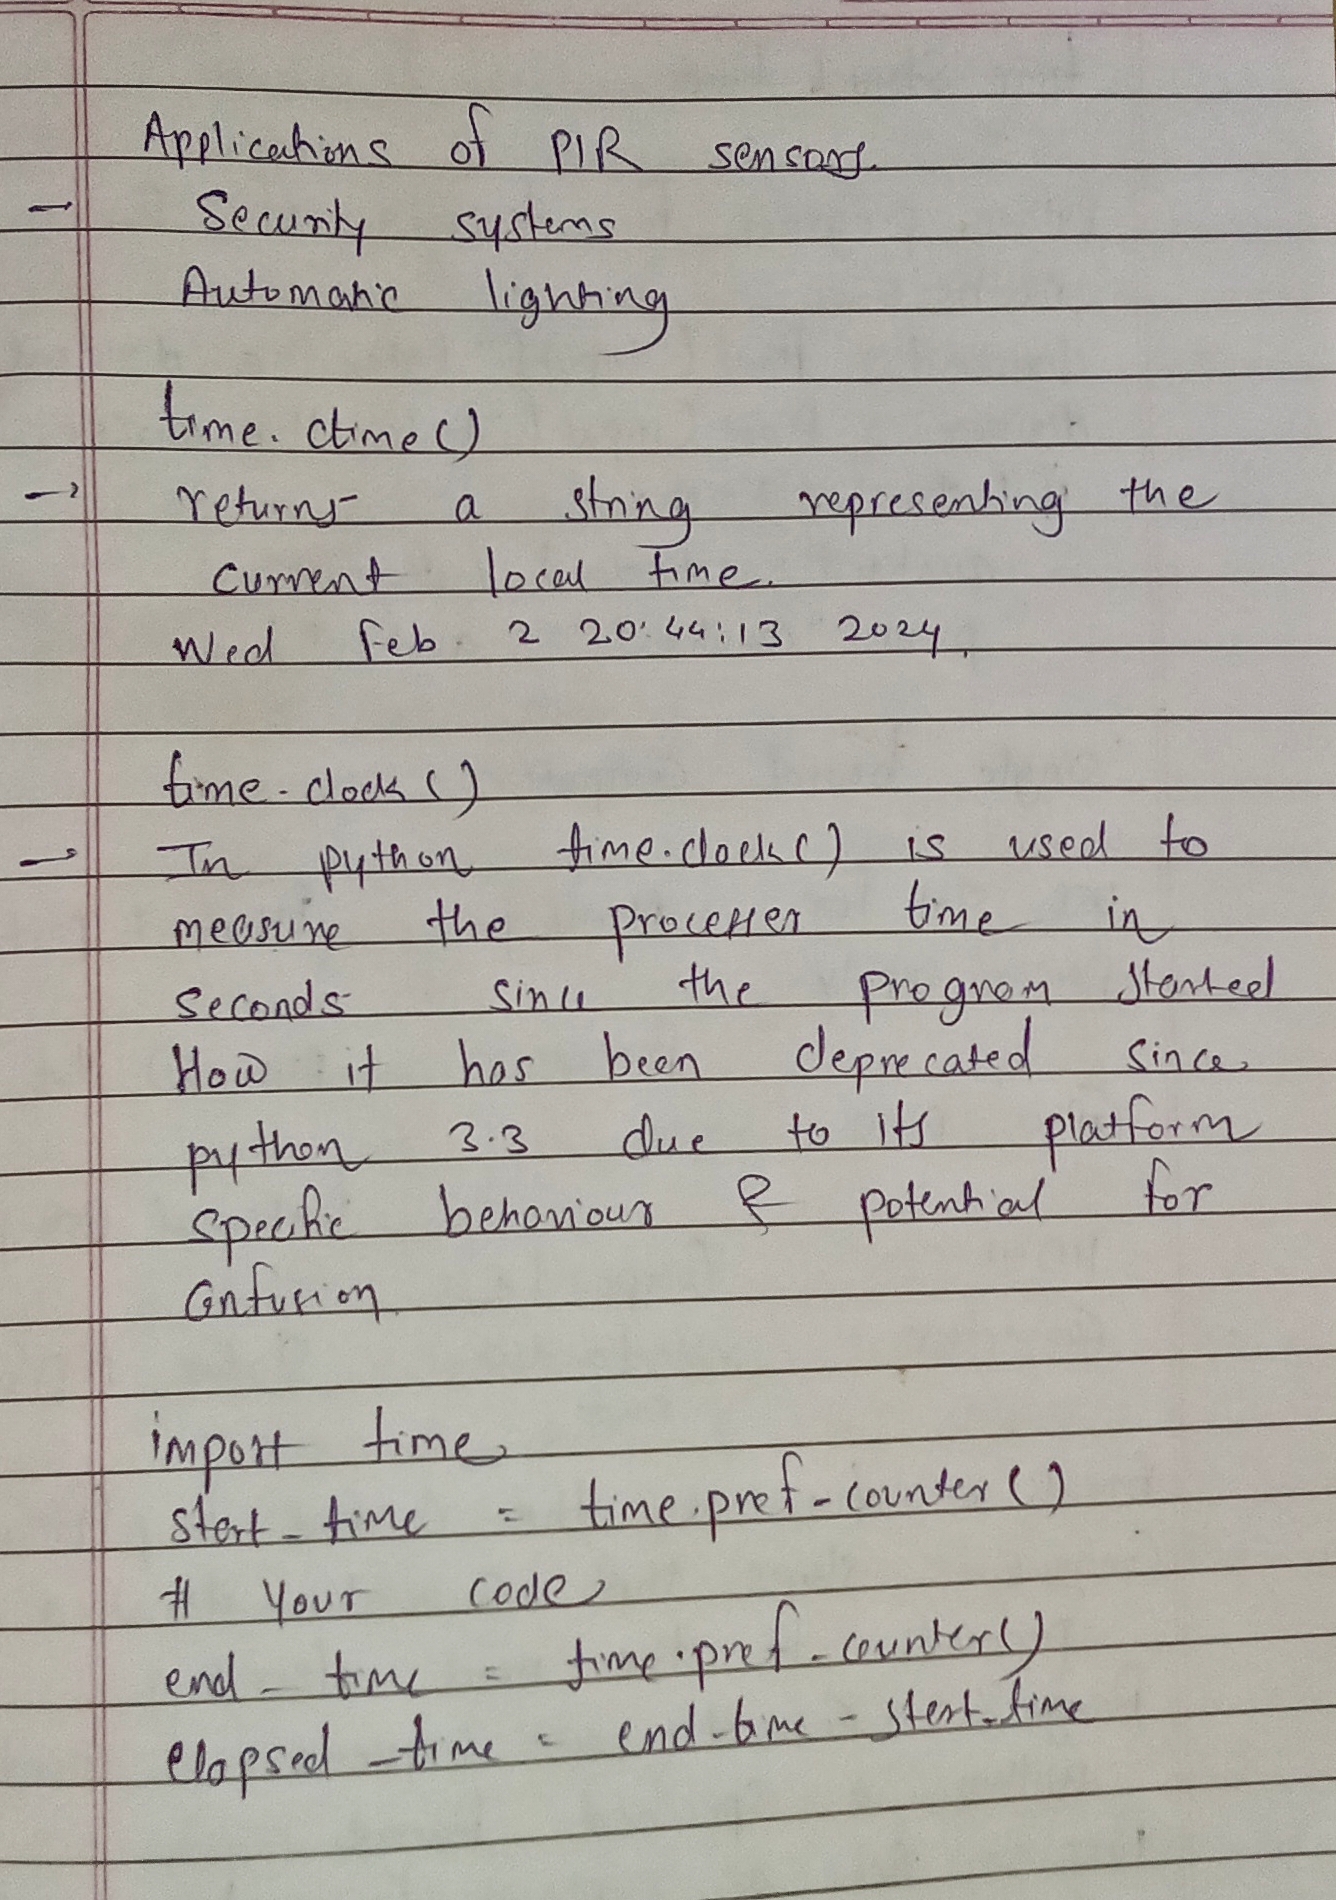 Applications of PIR sensors
→ Security systems
Automatic lighting
time. ctime()
→ returns a string representing the
current local time.
Wed Feb. 2 20:44:13 2024.
time. clock ()
→ In python time.clock() is used to
measure the processer time in
seconds since the program started
How it has been deprecated since
python 3.3 due to its platform
specific behaviour & potential for
confusion.
import time
start_time = time.pref_counter()
# Your code
end_time = time.pref_counter()
elapsed_time = end_time - start_time